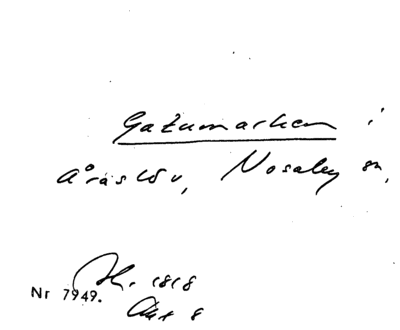 Gatumarken i
Åraslöv, Nosaby sn,
1818
Nr 7949.
Akt 8